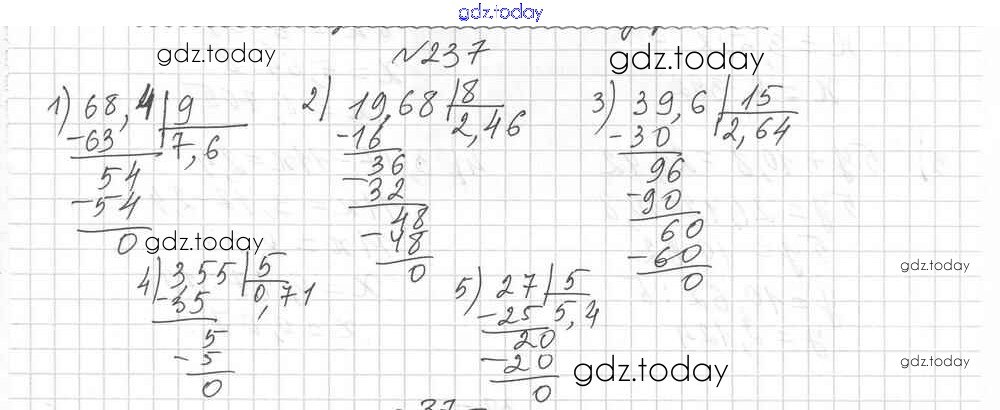 gdz.today
gdz.today
№237
gdz.today
1) 68,4 | 9
-63 7,6
54
-54
0
2) 19,68 | 8
-16 2,46
36
-32
48
-48
0
3) 39,6 | 15
-30 2,64
96
-90
60
-60
0
gdz.today
gdz.today
4) 355 | 5
-35 0,71
5
-5
0
5) 27 | 5
-25 5,4
20
-20
0
gdz.today
gdz.today